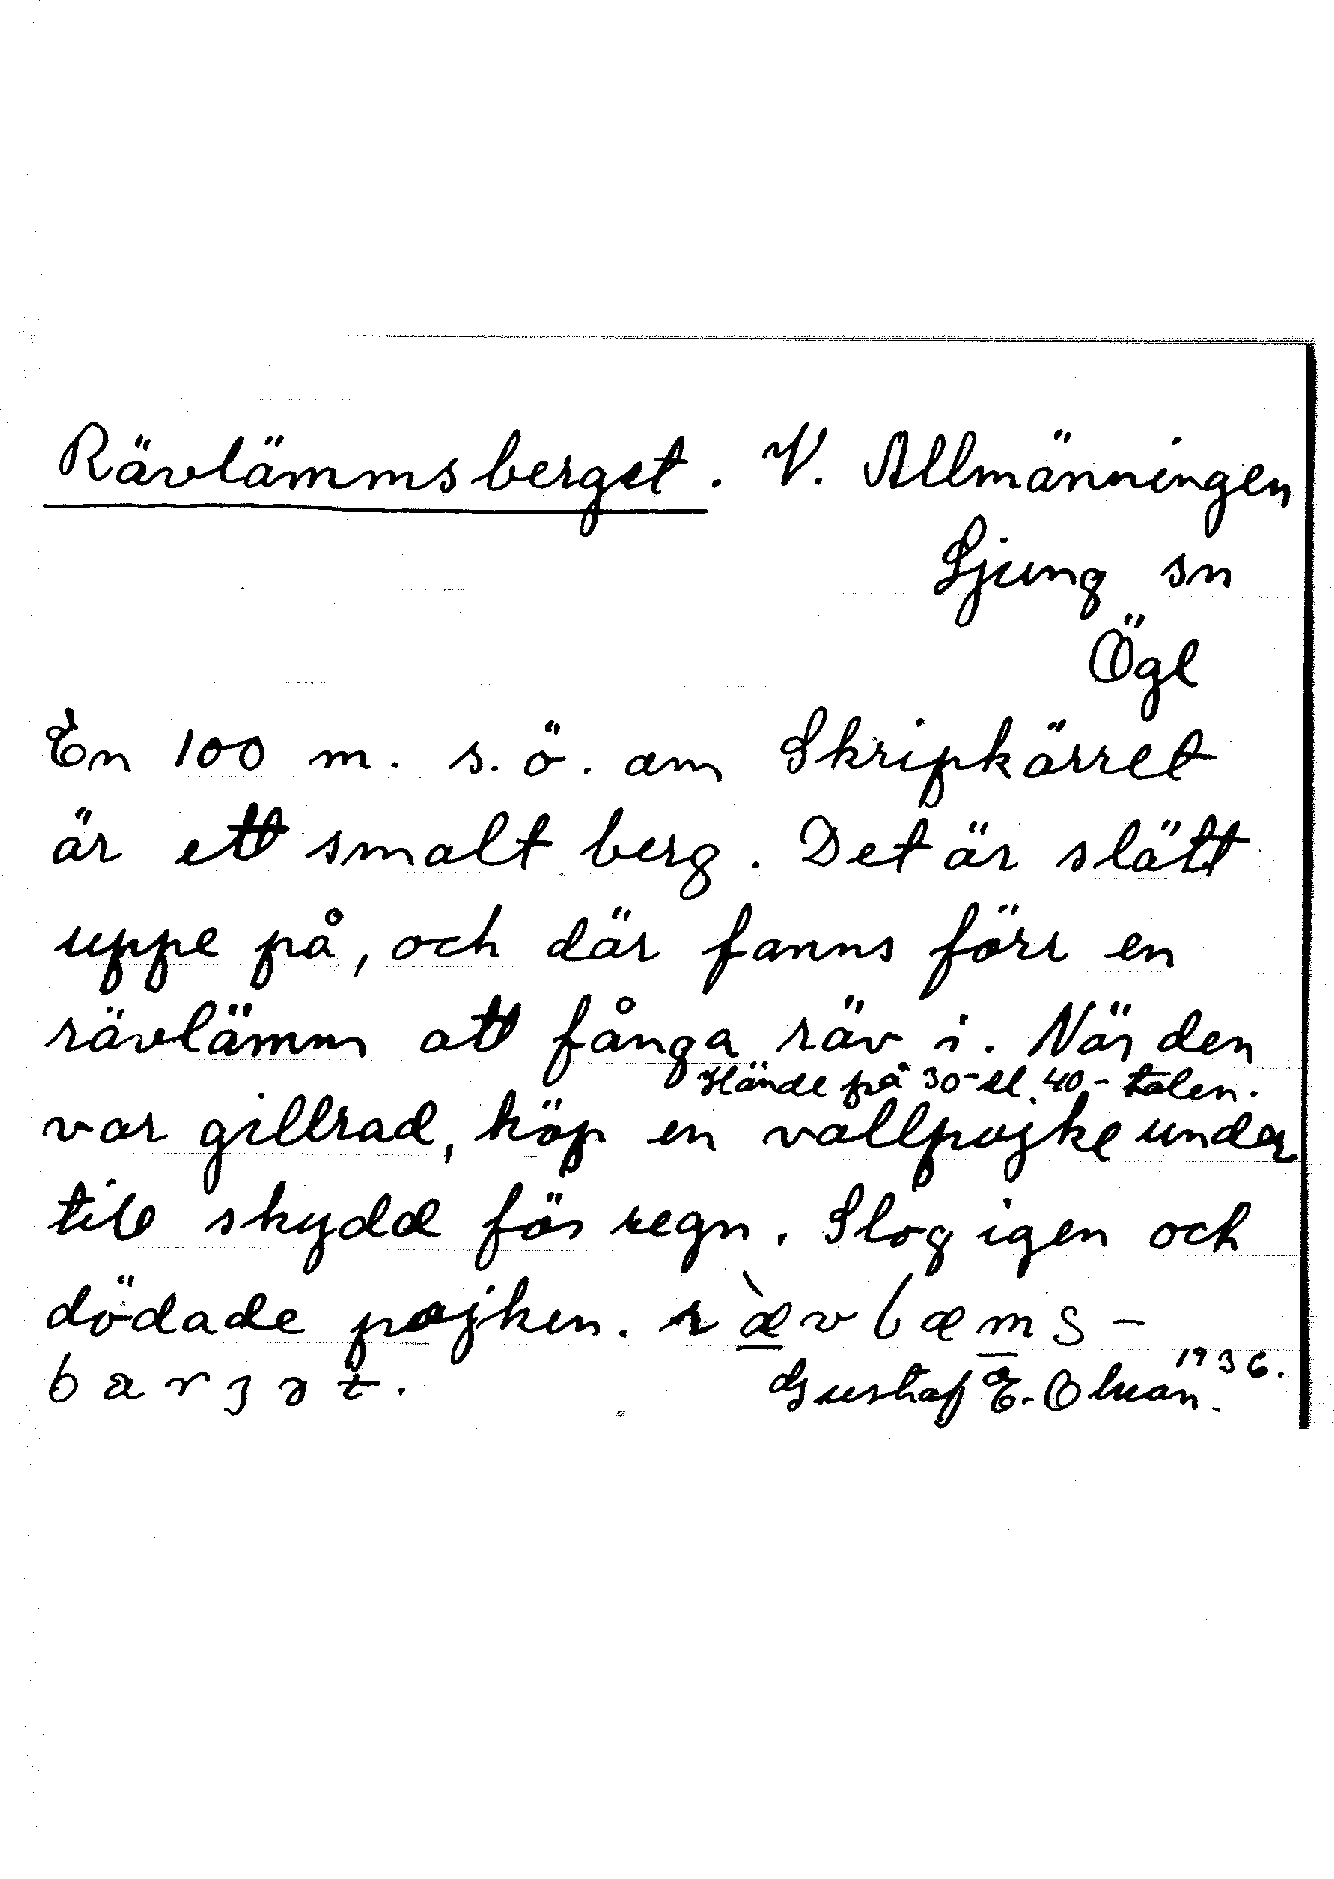 Rävlämmsberget. V. Allmänningen
Ljung sn
Ögl
En 100 m. s.ö. om Skripkärret
är ett smalt berg. Det är slätt
uppe på, och där fanns förr en
rävlämm att fånga räv i. När den
Hände på 30- el. 40-talen.
var gillrad, köp en vallpojke under
till skydd för regn. Slog igen och
dödade pojken. ræ̀vlæms-
barjət.
1936.
Gustaf E. Olman.